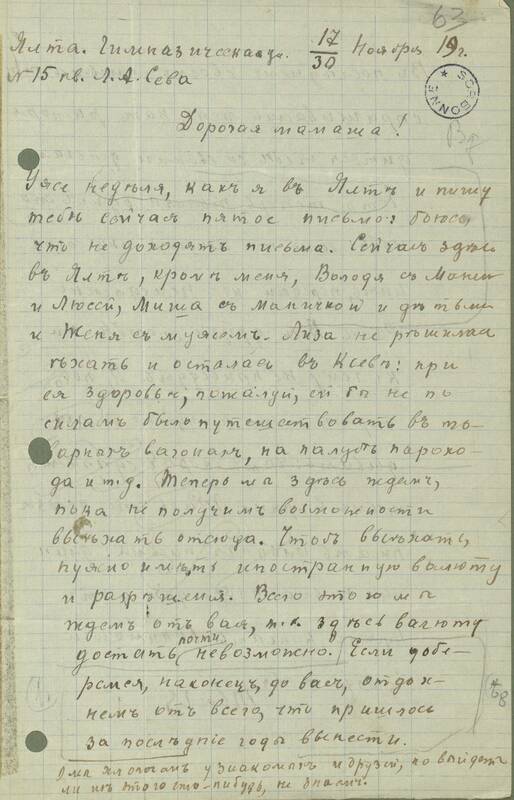 63
Ялта. Гимназическая ул. 17/30 Ноября 19 г.
№ 15 кв. Л. А. Сева
SORBONNE
Дорогая мамаша!
Уже недѣля, какъ я въ Ялтѣ и пишу
тебѣ сейчасъ пятое письмо: боюсь,
что не доходятъ письма. Сейчасъ здѣсь
въ Ялтѣ, кромѣ меня, Володя съ Маней
и Люсей, Миша съ Маничкой и дѣтьми
и Женя съ мужомъ. Лиза не рѣшилась
ѣхать и осталась въ Кіевѣ: при
ея здоровьѣ, пожалуй, ей бы не по
силамъ было путешествовать въ то-
варныхъ вагонахъ, на палубѣ парохо-
да и т.д. Теперь мы здѣсь ждемъ,
пока не получимъ возможности
выѣхать отсюда. Чтобъ выѣхать,
нужно имѣть иностранную валюту
и разрѣшенія. Всего этого мы
ждемъ отъ васъ, т.к. здѣсь валюту
достать почти невозможно. Если добе-
ремся, наконецъ, до васъ, отдох-
немъ отъ всего, что пришлось
за послѣдніе годы вынести.
хлопочемъ у знакомыхъ и друзей, но выйдетъ
ли изъ этого что-нибудь, не знаемъ.